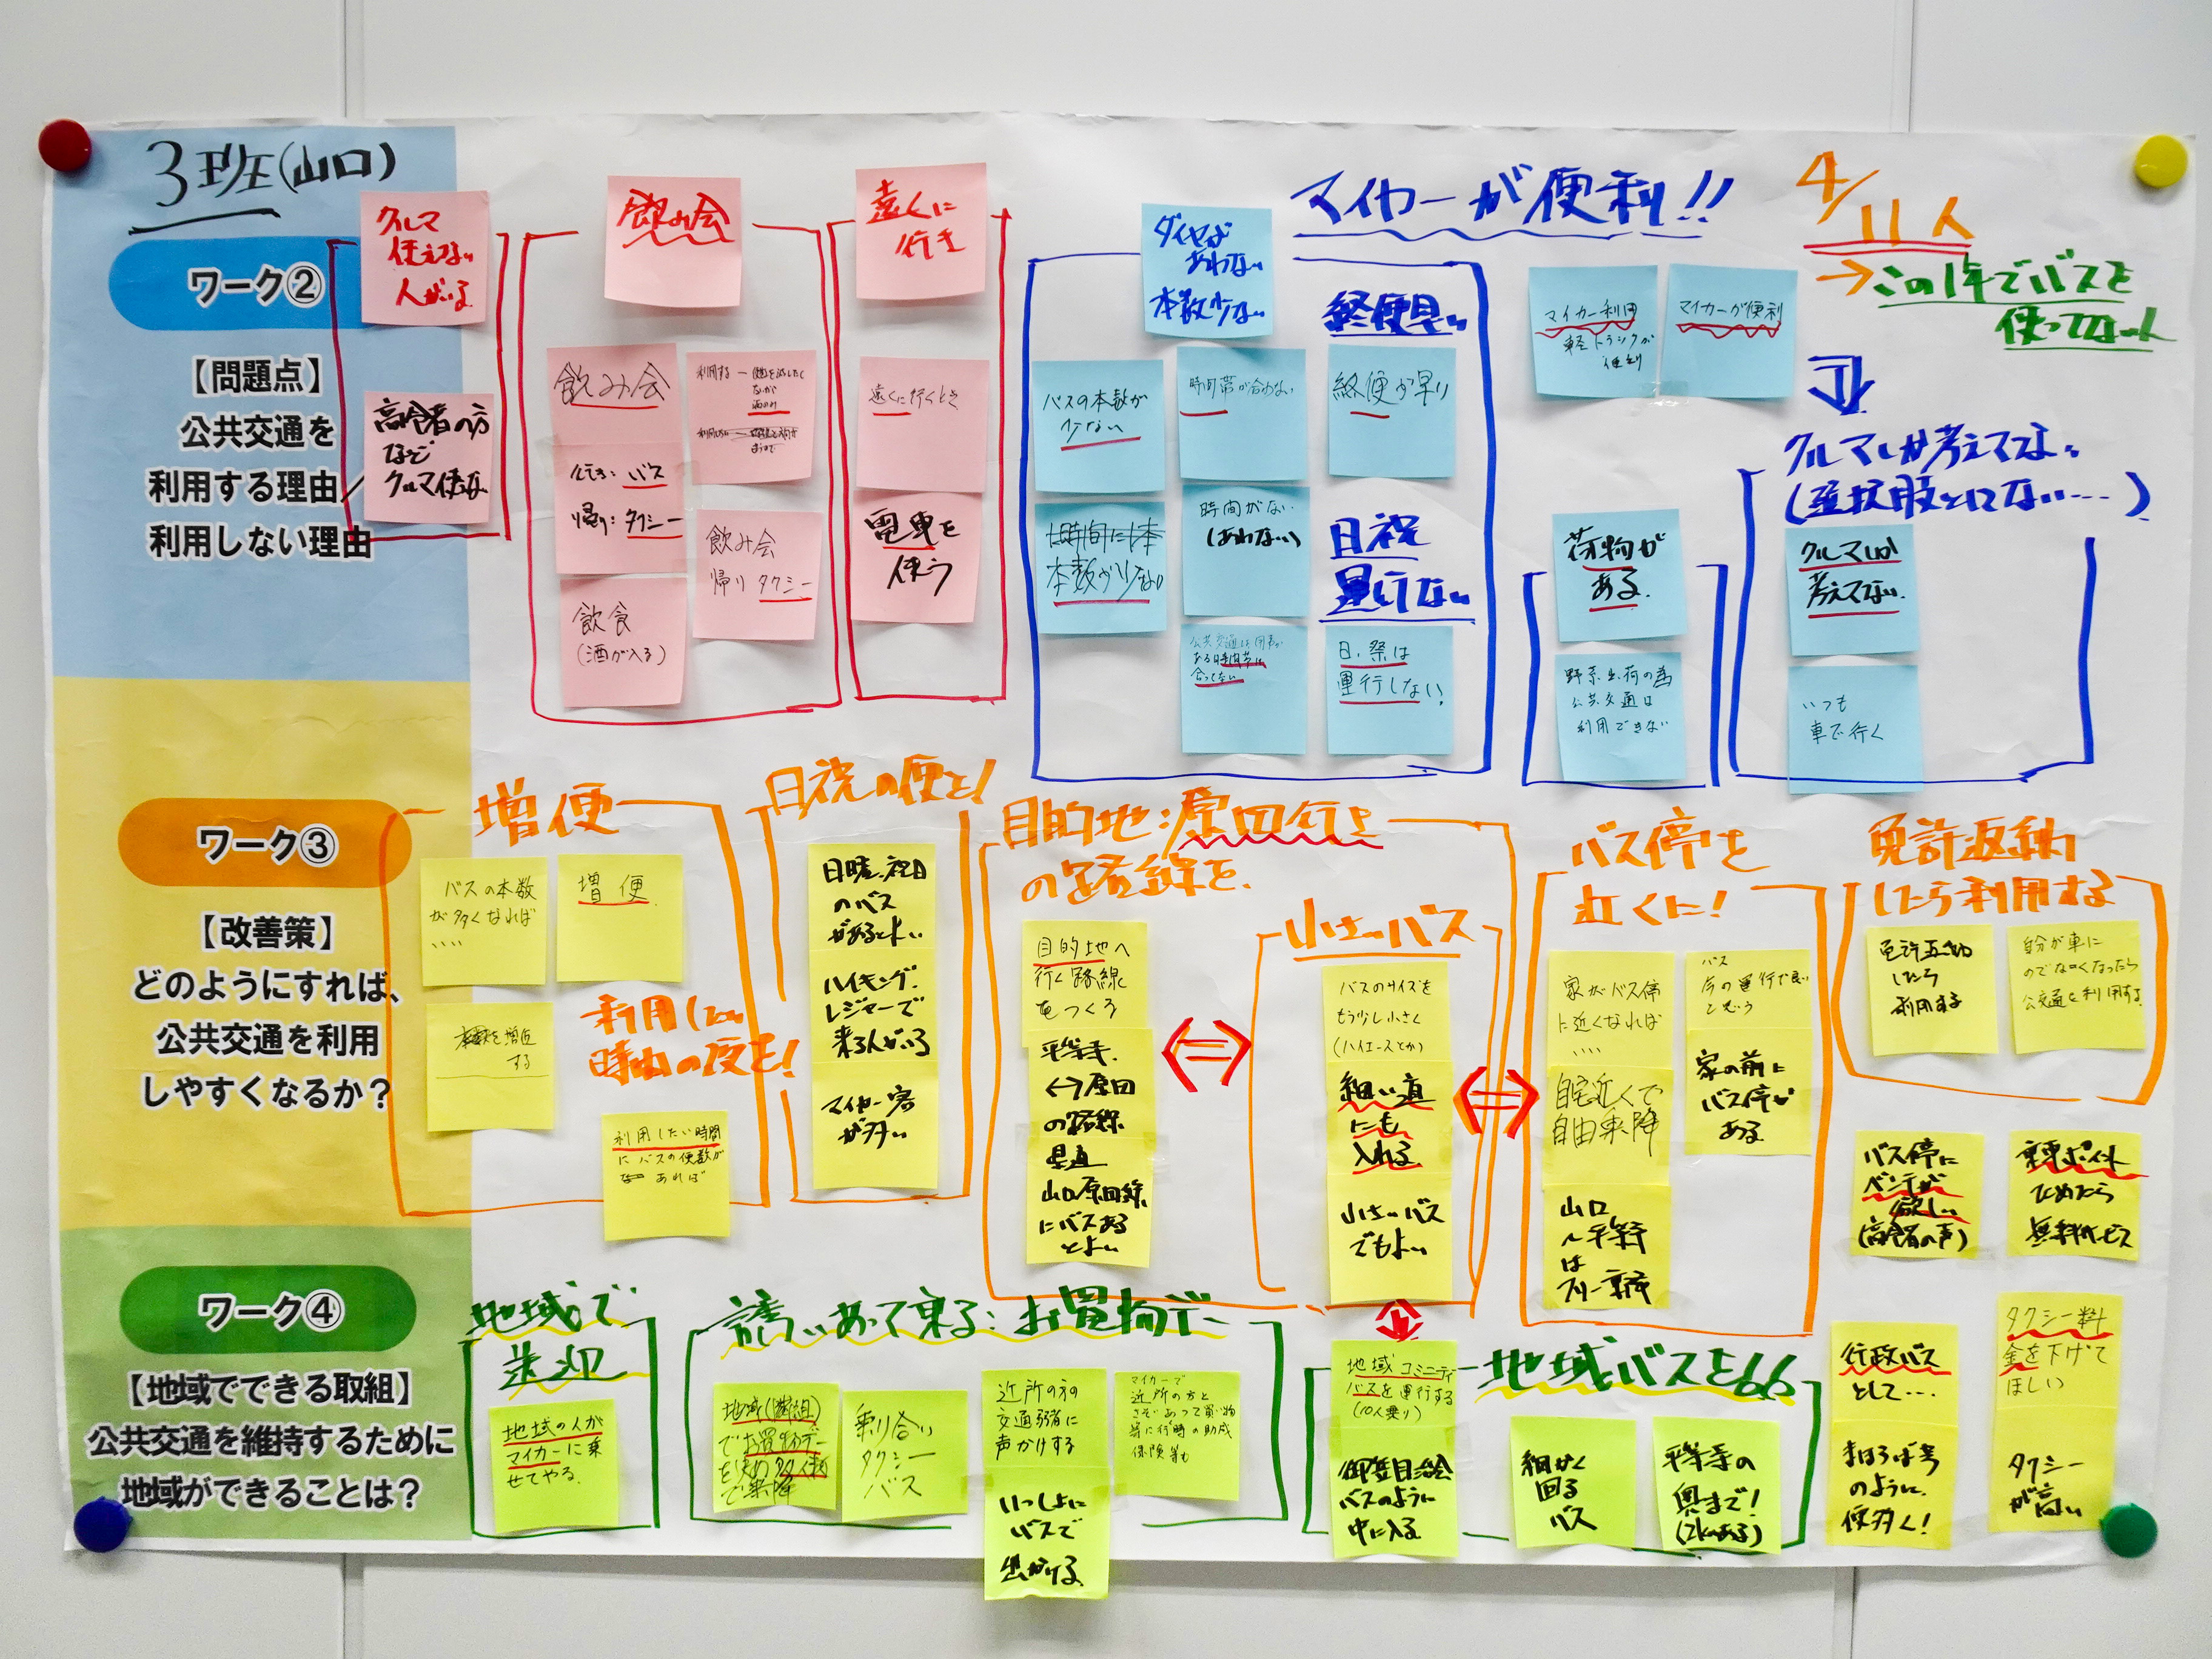 3班(山口)
ワーク②
【問題点】
公共交通を
利用する理由/
利用しない理由
クルマ
使えない
人がいる
高齢者の方
など
クルマ使えない
飲み会
飲み会
行き:バス
帰り:タクシー
飲食
(酒が入る)
飲み会
帰り タクシー
遠くに
行き
遠くに行くとき
電車を
使う
マイカーが便利!!
ダイヤが
あわない
本数少ない
終便早い
バスの本数が
少ない
時間帯が合わない
終便が早い
1時間に1本
本数が少ない
時間がない
(あわない)
日祝
運行ない
公共交通は用事が
ある時間帯に
合ってない
日、祭は
運行しない!
マイカー利用
軽トラックが
便利
マイカーが便利
荷物が
ある
野菜出荷の為
公共交通は
利用できない
4/11人
→この1年でバスを
使ってない人
クルマしか考えてない
(選択肢にない…)
クルマしか
考えてない
いつも
車で行く
ワーク③
【改善策】
どのようにすれば、
公共交通を利用
しやすくなるか?
増便
バスの本数
が多くなれば
....
増便
本数を増便
する
利用したい
時間の便を!
利用したい時間
にバスの便数が
あれば
日祝の便を!
日曜、祝日
のバス
があるとよい
ハイキング、
レジャーで
来る人がいる
マイカー客
が多い
目的地:原田行き
の路線を
目的地へ
行く路線
をつくる
平等寺
↔原田
の路線
県道
山口原田線
にバスある
とよい
小さいバス
バスのサイズを
もう少し小さく
(ハイエースとか)
細い道
にも
入れる
小さいバス
でもよい
バス停を
近くに!
家がバス停
に近くなれば
....
バス
今の運行で良い
と思う
自宅近くで
自由乗降
家の前に
バス停が
ある
山口
~平等寺
は
フリー乗降
免許返納
したら利用する
免許返納
したら
利用する
自分が車に
のでなくなったら
公交通を利用する
バス停に
ベンチが
欲しい
(高齢者の声)
乗車ポイント
ためたら
無料サービス
行政バス
として…
まほろば号
のように、
便多く!
タクシー料
金を下げて
ほしい
タクシー
が高い
ワーク④
【地域でできる取組】
公共交通を維持するために
地域ができることは?
地域で
送迎
地域の人が
マイカーに乗
せてやる
誘いあって乗る:お買物デー
地域(隣組)
でお買物デー
を決め
で乗降
乗り合い
タクシー
バス
近所の方の
交通弱者に
声かけする
いっしょに
バスで
出かける
マイカーで
近所の方と
さそいあって買い物
等に行く時の助成
保険等も
地域バスを
地域コミュニティ
バスを運行する
(10人乗り)
御笠自治会
バスのように
中に入る
細かく
回る
バス
平等寺の
奥まで!
(2kmある)